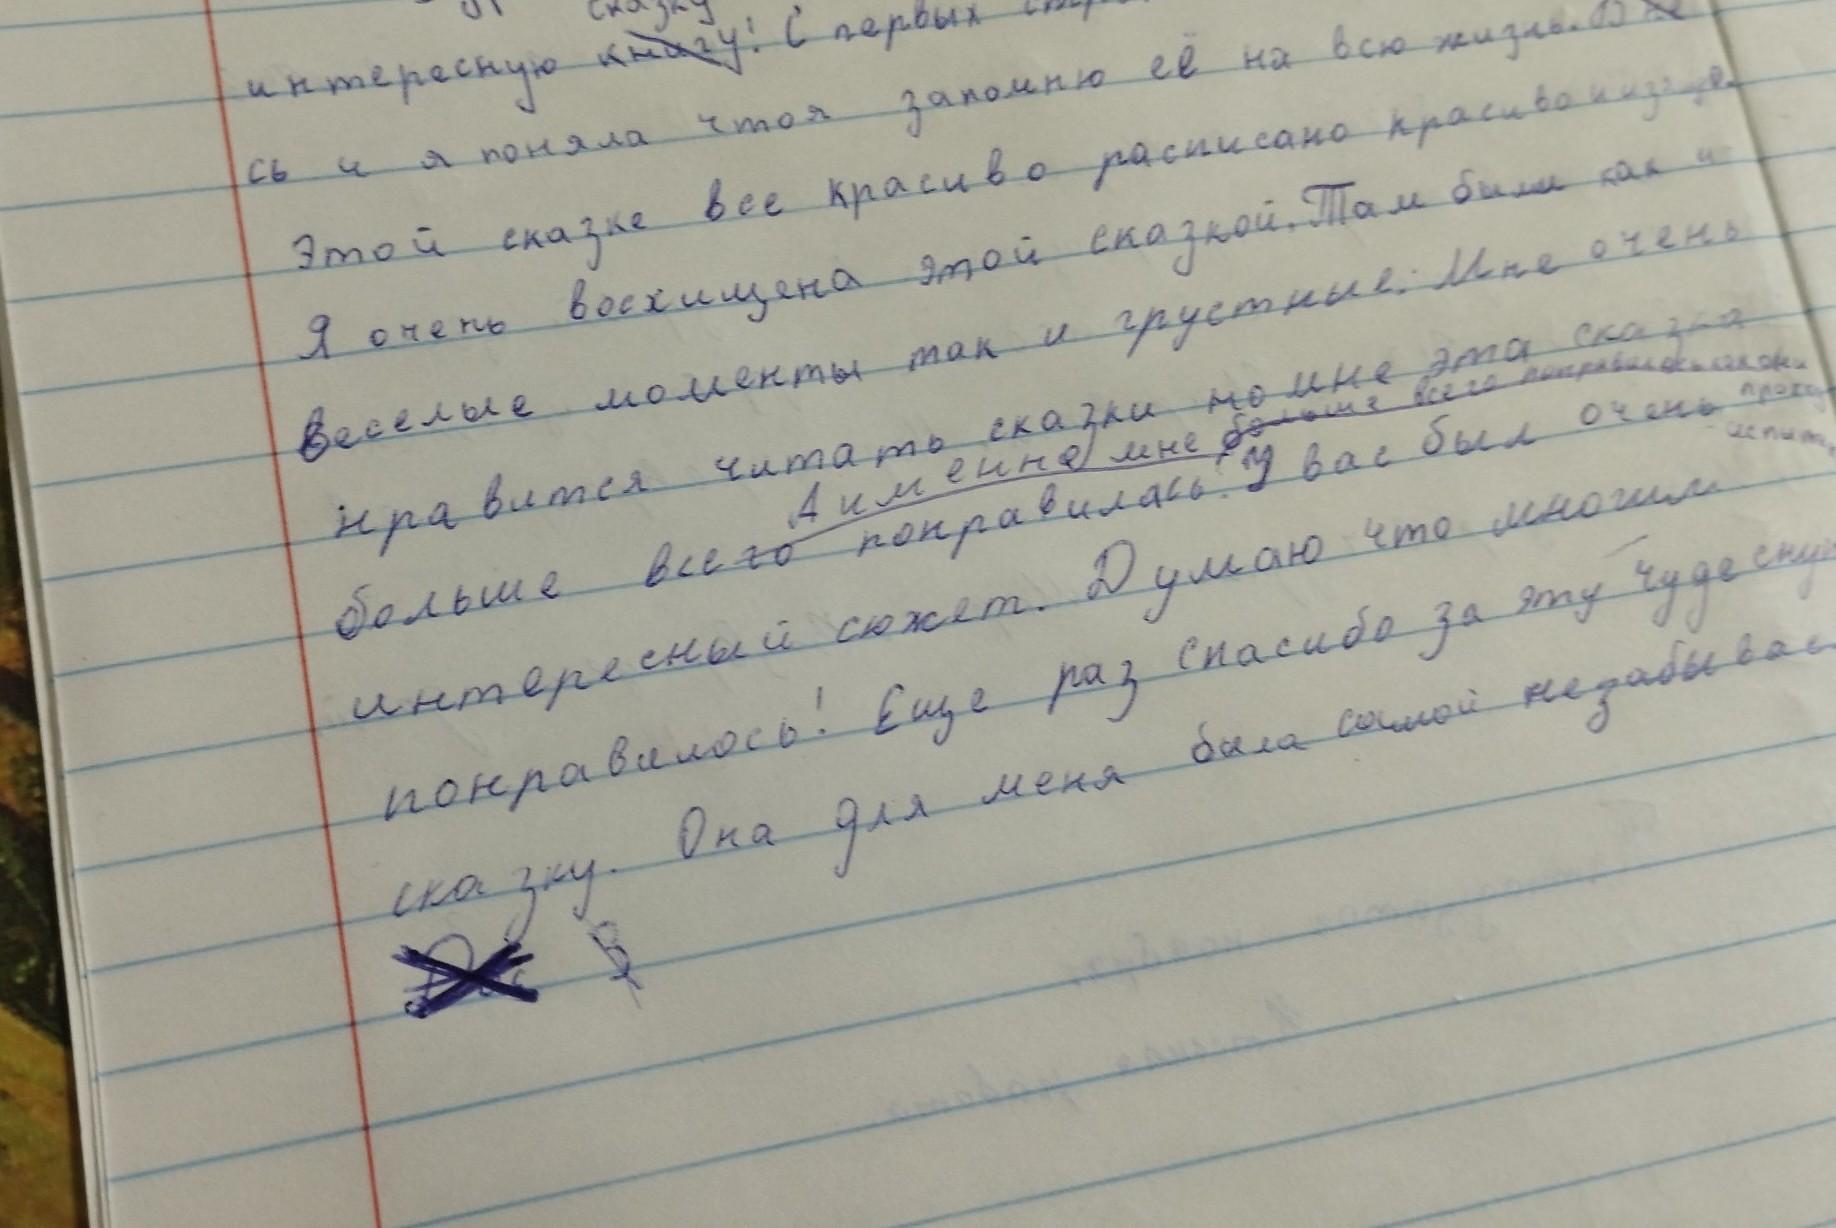 сказку
интересную книгу! С первых
сь и я поняла чтоя запомню её на всю жизнь. В
этой сказке все красиво расписано красиво и
Я очень восхищена этой сказкой. Там были как и
веселые моменты так и грустные. Мне очень
нравится читать сказки но мне эта сказка
А именно мне больше всего понравилось как они
больше всего понравилась! У вас был очень
интересный сюжет. Думаю что многим
понравилось! Еще раз спасибо за эту чудесную
сказку. Она для меня была самой незабывае
В